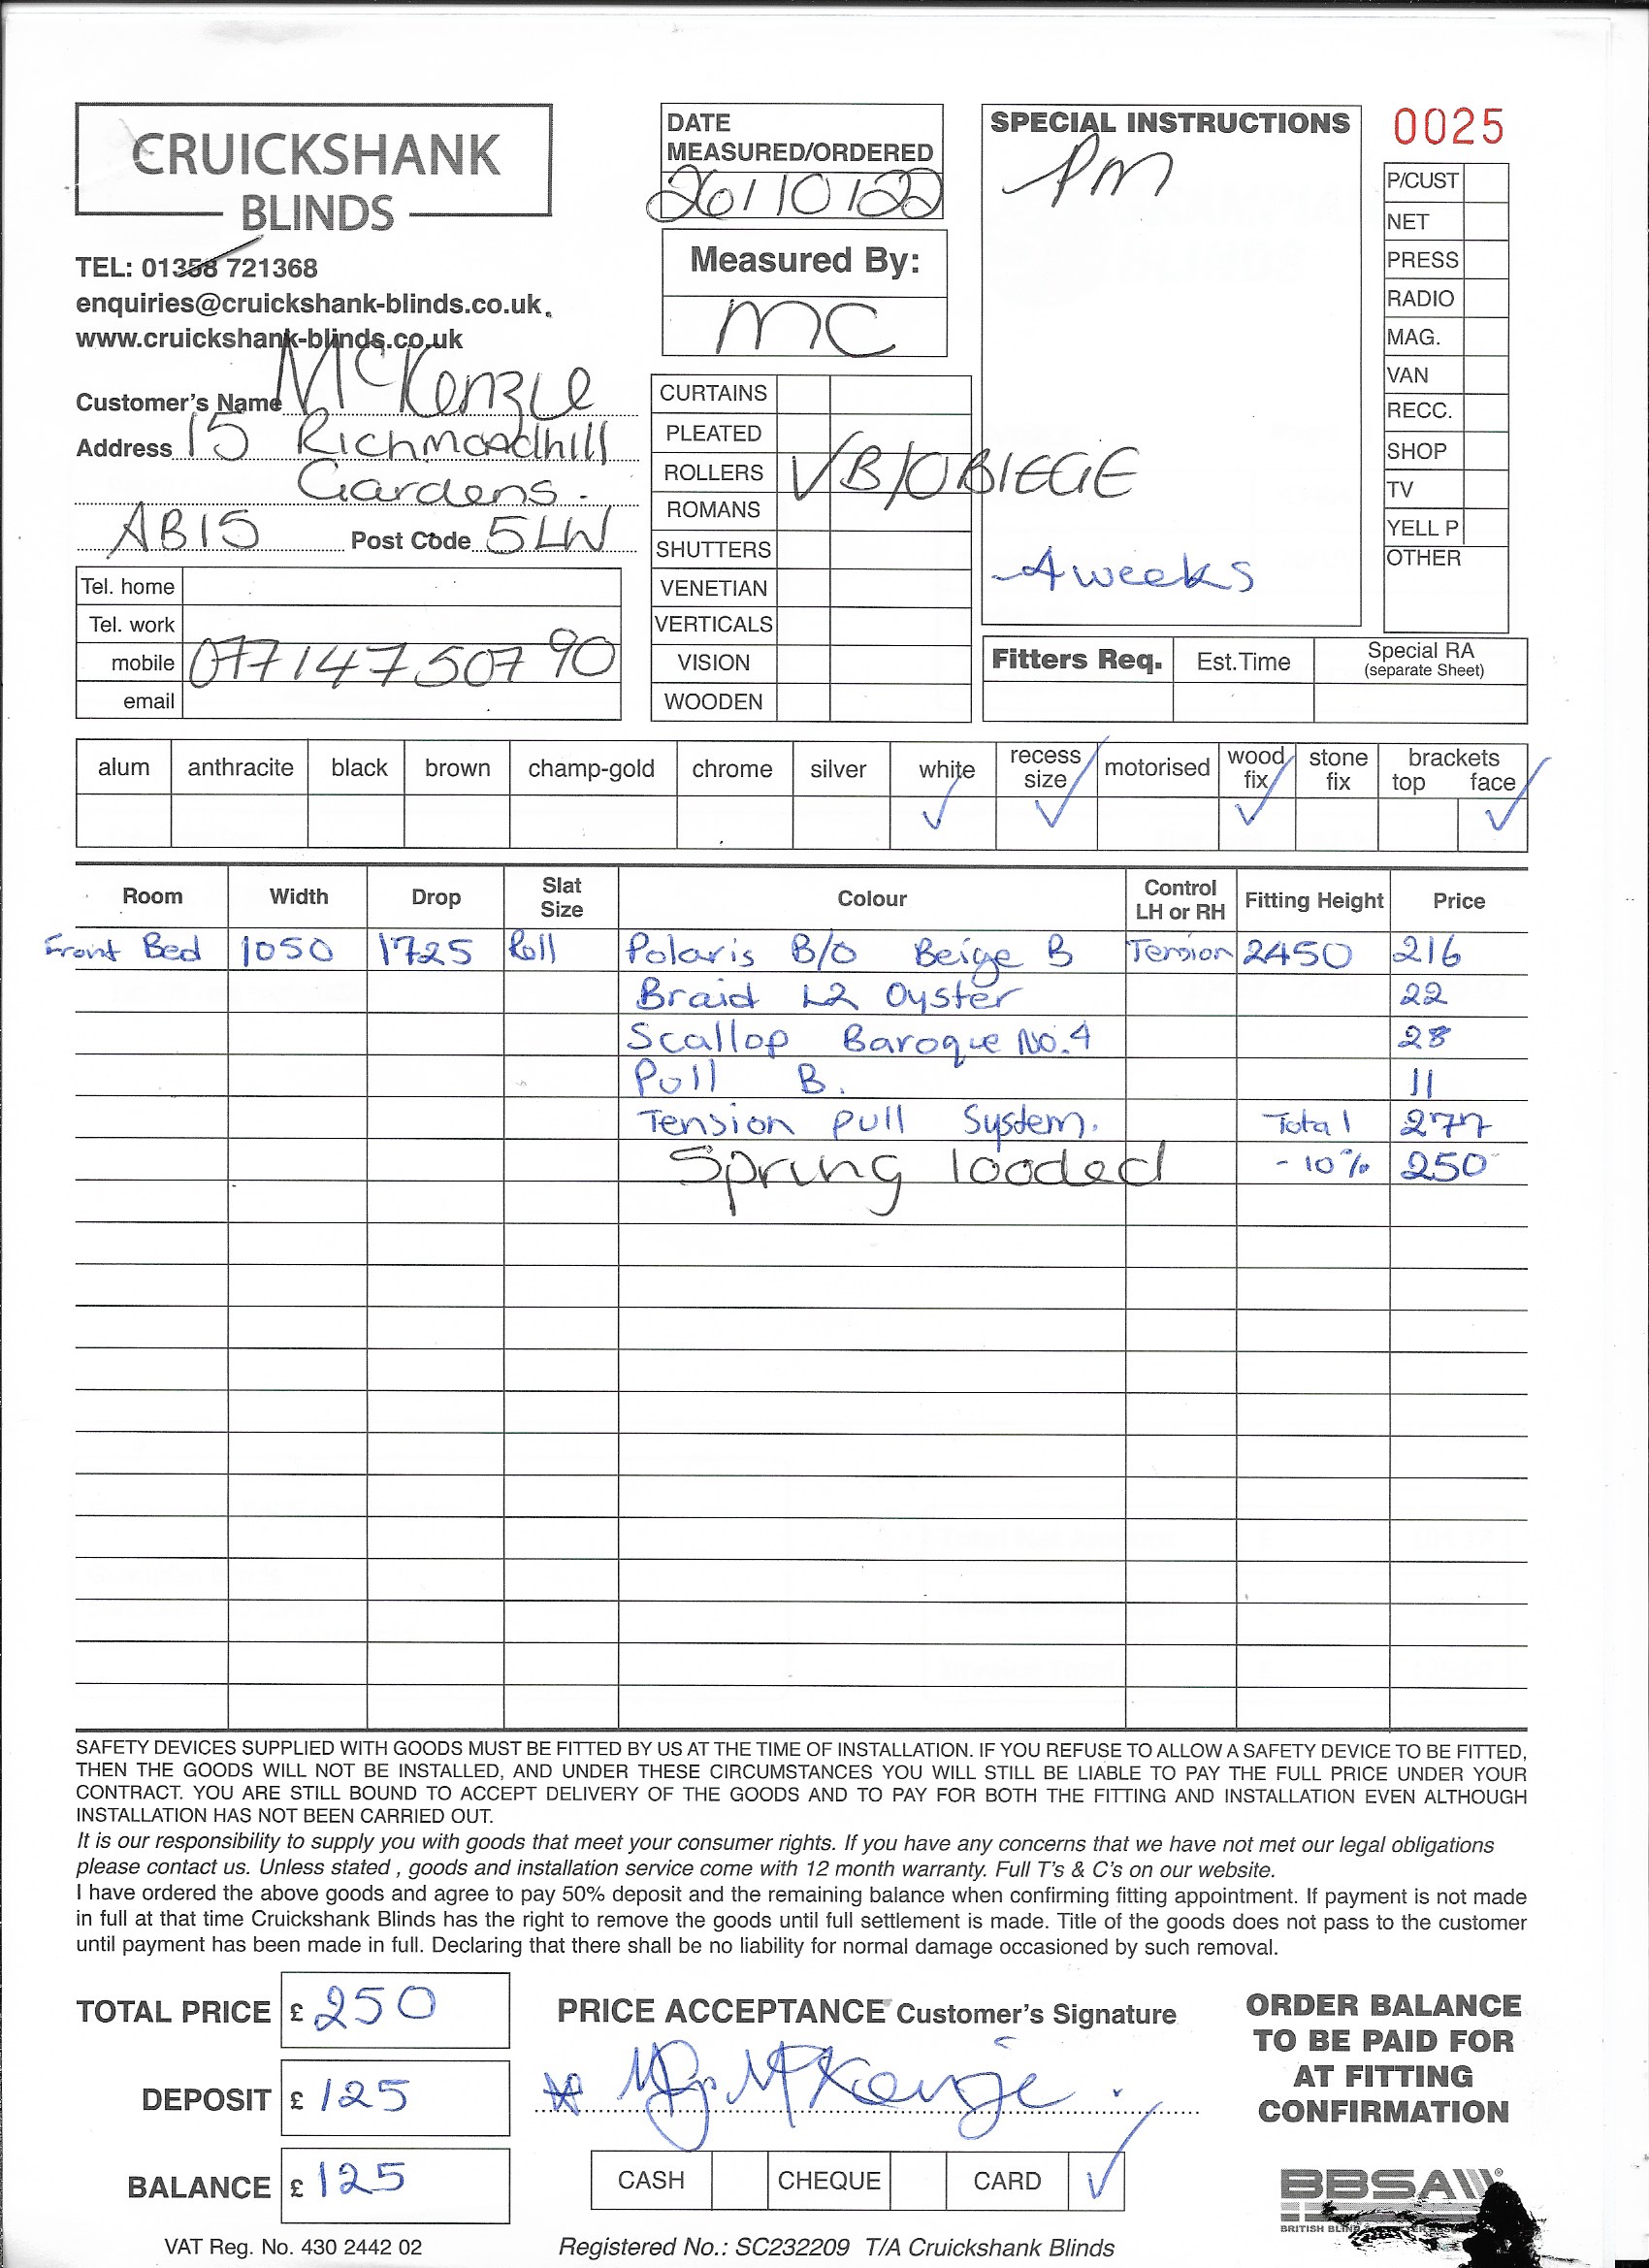 CRUICKSHANK
BLINDS
TEL: 01358 721368
enquiries@cruickshank-blinds.co.uk
www.cruickshank-blinds.co.uk
Customer's Name McKenzie
Address 15 Richmondhill
Gardens.
AB15 Post Code 5LW
Tel. home
Tel. work
mobile 07714750790
email
DATE
MEASURED/ORDERED
26/10/22
Measured By:
MC
CURTAINS
PLEATED
ROLLERS B/O BIEGE
ROMANS
SHUTTERS
VENETIAN
VERTICALS
VISION
WOODEN
SPECIAL INSTRUCTIONS
PM
4 weeks
0025
P/CUST
NET
PRESS
RADIO
MAG.
VAN
RECC.
SHOP
TV
YELL P
OTHER
Fitters Req. Est.Time Special RA
(separate Sheet)
alum anthracite black brown champ-gold chrome silver white recess size motorised wood fix stone fix brackets top face
Room Width Drop Slat Size Colour Control LH or RH Fitting Height Price
Front Bed 1050 1725 Roll Polaris B/O Beige B Tension 2450 216
Braid L2 Oyster 22
Scallop Baroque No.4 28
Pull B. 11
Tension pull System. Total 277
Spring looded -10% 250
SAFETY DEVICES SUPPLIED WITH GOODS MUST BE FITTED BY US AT THE TIME OF INSTALLATION. IF YOU REFUSE TO ALLOW A SAFETY DEVICE TO BE FITTED,
THEN THE GOODS WILL NOT BE INSTALLED, AND UNDER THESE CIRCUMSTANCES YOU WILL STILL BE LIABLE TO PAY THE FULL PRICE UNDER YOUR
CONTRACT. YOU ARE STILL BOUND TO ACCEPT DELIVERY OF THE GOODS AND TO PAY FOR BOTH THE FITTING AND INSTALLATION EVEN ALTHOUGH
INSTALLATION HAS NOT BEEN CARRIED OUT.
It is our responsibility to supply you with goods that meet your consumer rights. If you have any concerns that we have not met our legal obligations
please contact us. Unless stated , goods and installation service come with 12 month warranty. Full T's & C's on our website.
I have ordered the above goods and agree to pay 50% deposit and the remaining balance when confirming fitting appointment. If payment is not made
in full at that time Cruickshank Blinds has the right to remove the goods until full settlement is made. Title of the goods does not pass to the customer
until payment has been made in full. Declaring that there shall be no liability for normal damage occasioned by such removal.
TOTAL PRICE £ 250
DEPOSIT £ 125
BALANCE £ 125
PRICE ACCEPTANCE Customer's Signature
McKenzie
CASH CHEQUE CARD
ORDER BALANCE
TO BE PAID FOR
AT FITTING
CONFIRMATION
BBSA
BRITISH
VAT Reg. No. 430 2442 02
Registered No.: SC232209 T/A Cruickshank Blinds